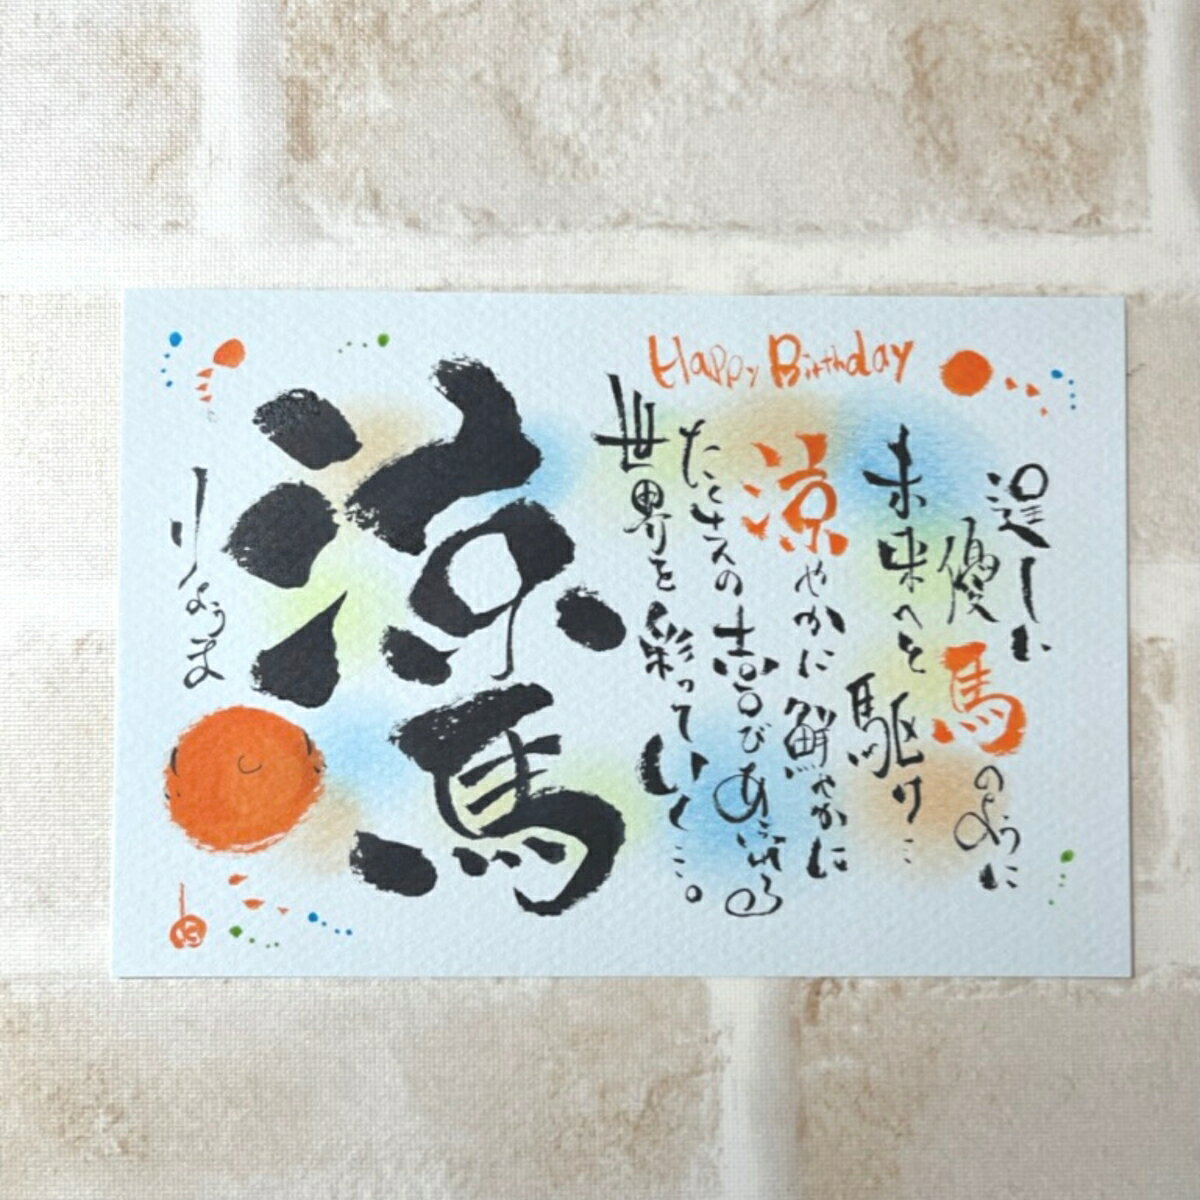 Happy Birthday
逞しい
優馬のように
未来へと
駆け…
涼やかに
鮮やかに
たくさんの
喜び
あふれる
世界を
彩っていく…。
涼馬
りょうま